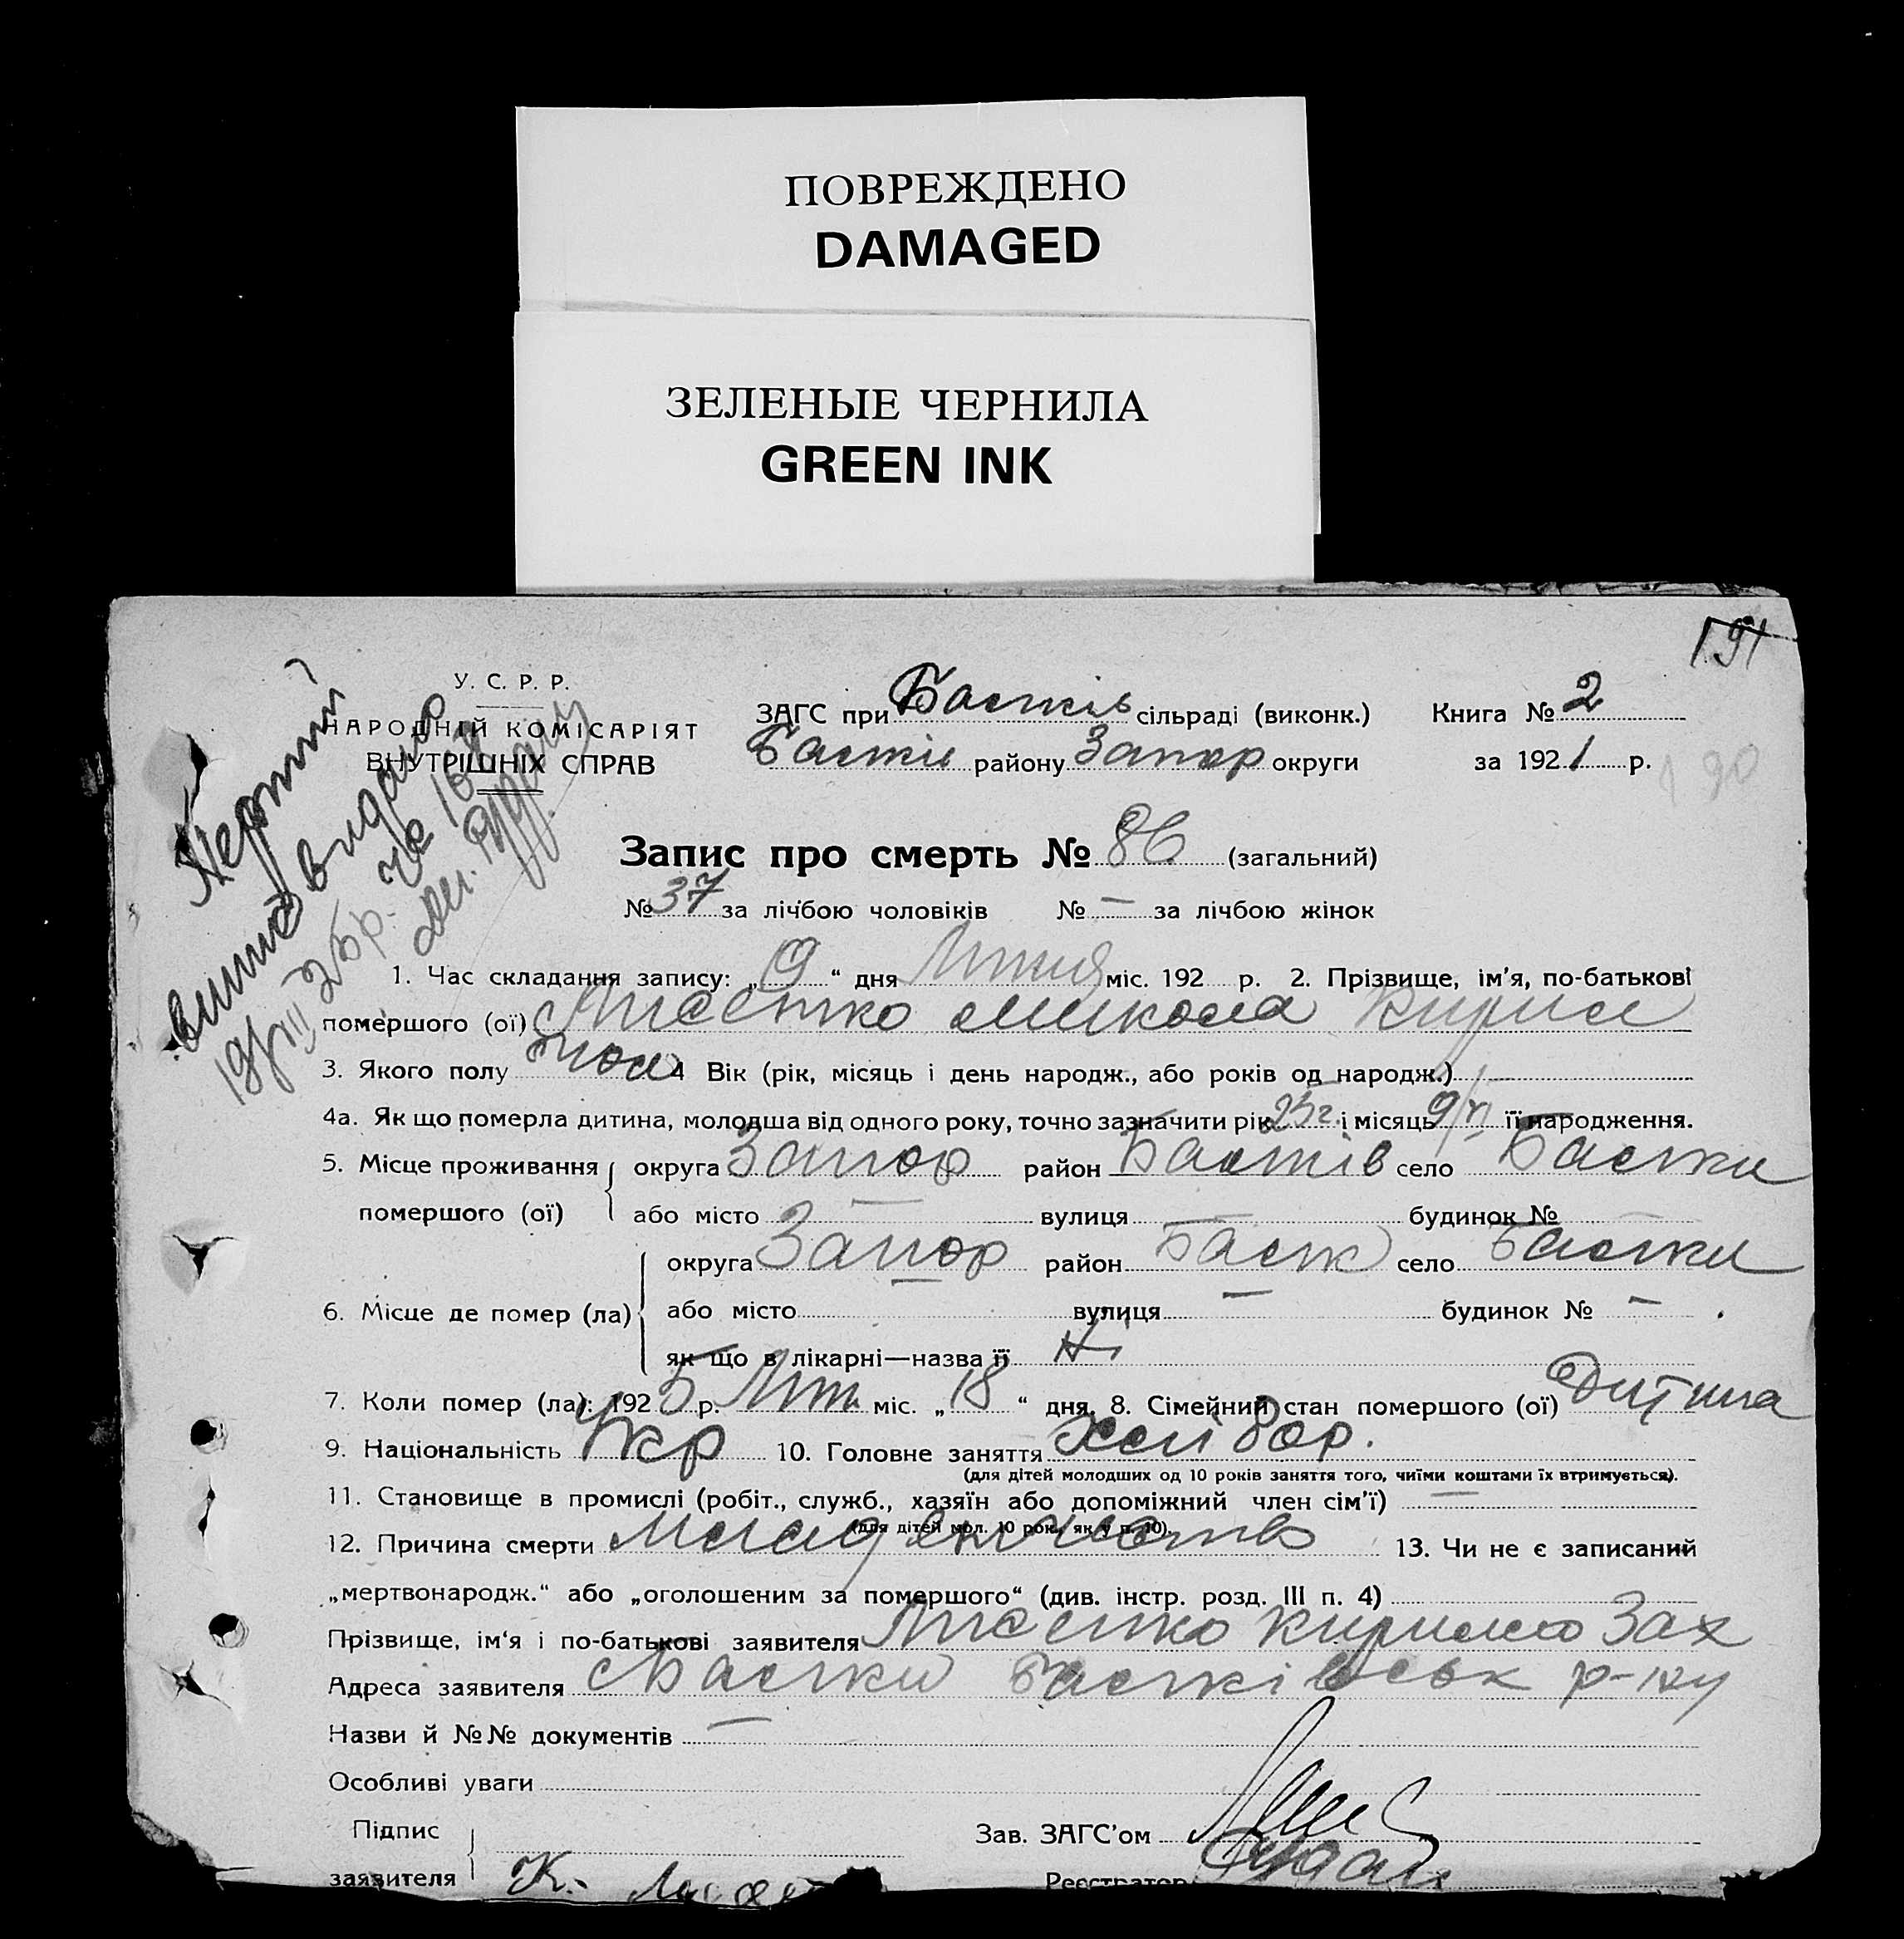 ПОВРЕЖДЕНО
DAMAGED
ЗЕЛЕНЫЕ ЧЕРНИЛА
GREEN INK
191
У. С. Р. Р.
НАРОДНІЙ КОМІСАРІЯТ
ВНУТРІШНІХ СПРАВ
ЗАГС при Басків сільраді (виконк.) Книга № 2
району Запор округи за 1921 р.
190
Перший
видано
Запис про смерть № 86 (загальний)
№ 37 за лічбою чоловіків № — за лічбою жінок
1. Час складання запису: „19“ дня Липня міс. 192 р. 2. Прізвище, ім'я, по-батькові
помершого (ої) Микола Кирил
3. Якого полу чол 4 Вік (рік, місяць і день народж., або років од народж.) —
4а. Як що померла дитина, молодша від одного року, точно зазначити рік 25 г. і місяць 9/VI її народження.
5. Місце проживання округа Запор район село
помершого (ої) або місто — вулиця — будинок № —
округа Запор район село
6. Місце де помер (ла) або місто — вулиця — будинок № —
як що в лікарні—назва її Ні
7. Коли помер (ла): 1925 р. Лип. міс. „18“ дня. 8. Сімейний стан помершого (ої) Дитина
9. Національність Укр 10. Головне заняття Хлібор.
(для дітей молодших од 10 років заняття того, чиїми коштами їх втримується).
11. Становище в промислі (робіт., служб., хазяїн або допоміжний член сім'ї) —
(для дітей мол. 10 рок., як у п. 10).
12. Причина смерти Младенчество 13. Чи не є записаний
„мертвонародж.“ або „оголошеним за помершого“ (див. інстр. розд. III п. 4)
Прізвище, ім'я і по-батькові заявителя Кирило Зах
Адреса заявителя р-ну
Назви й №№ документів —
Особливі уваги
Підпис
заявителя К.
Зав. ЗАГС'ом
Реєстратор